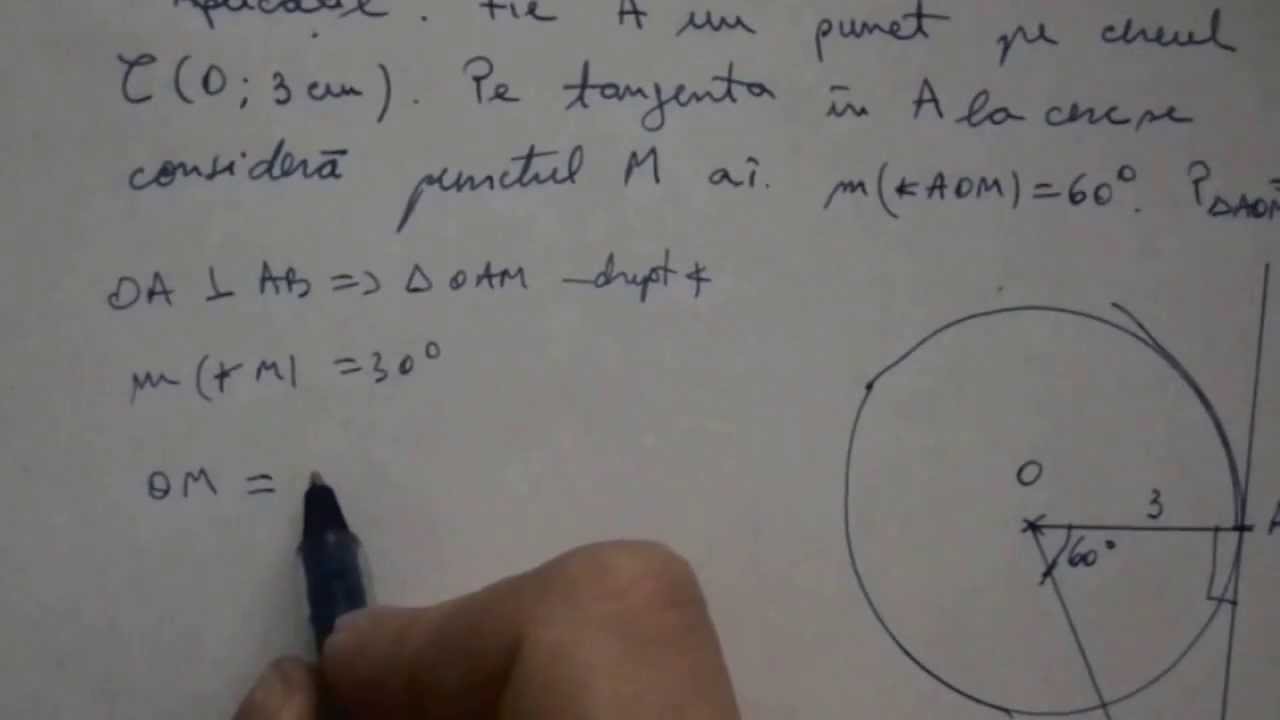 Aplicație. Fie A un punct pe cercul
C(O; 3 cm). Pe tangenta în A la cerc se
consideră punctul M aî. m(∢AOM)=60°. P
OA ⊥ AB => Δ OAM – drept ∢
m(∢M) = 30°
OM =
O
3
A
60°